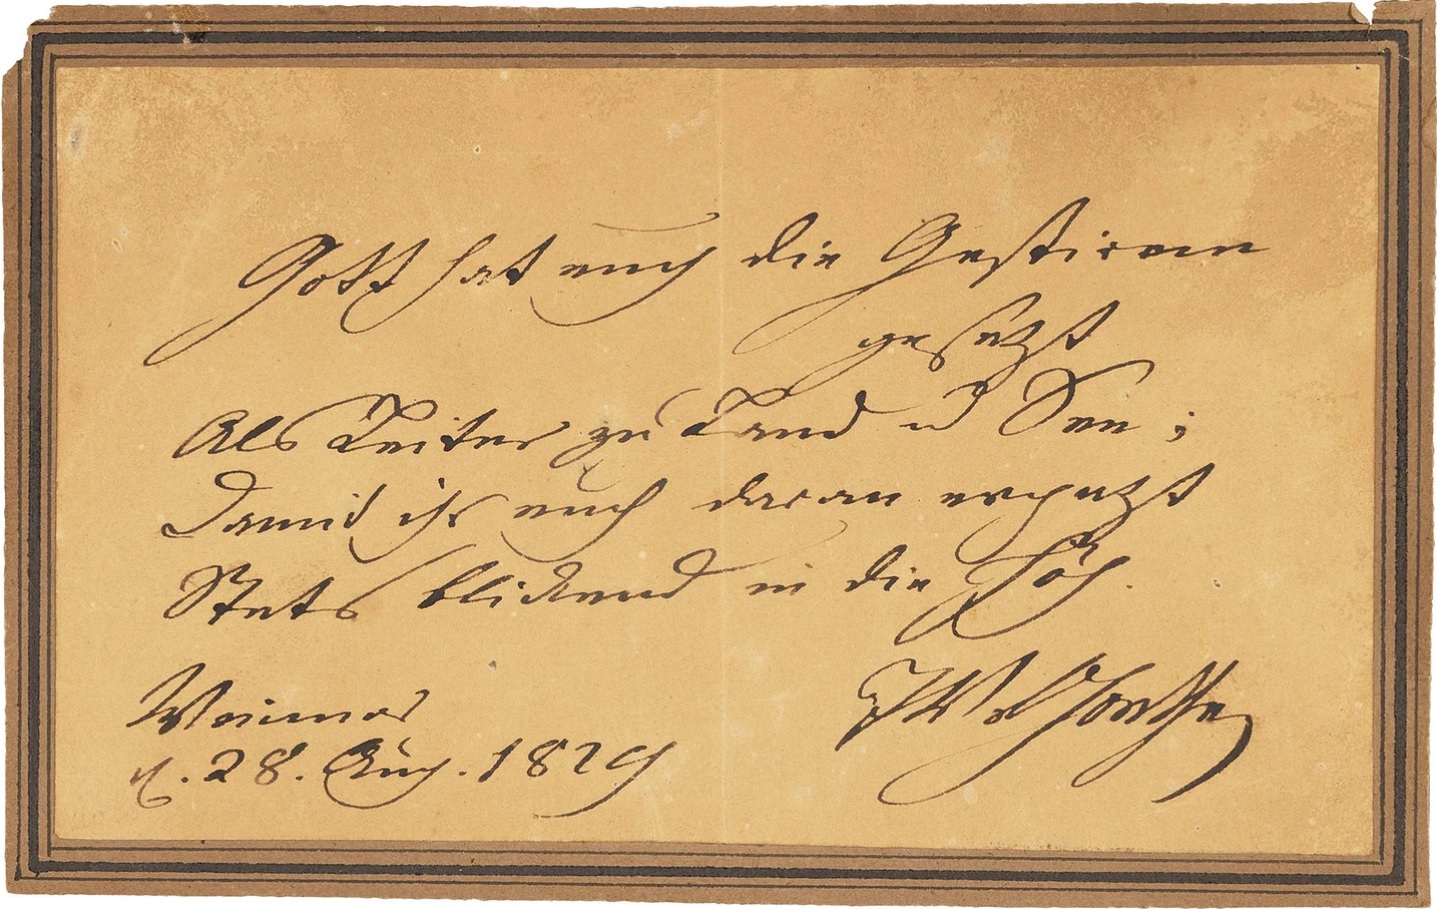 Gott hat euch die Gestirne
gesetzt
Als Leiter zu Land u See;
Damit ihr euch daran ergetzt
Stets blickend in die Höh.
Weimar JWvGoethe
d. 28. Aug. 1829